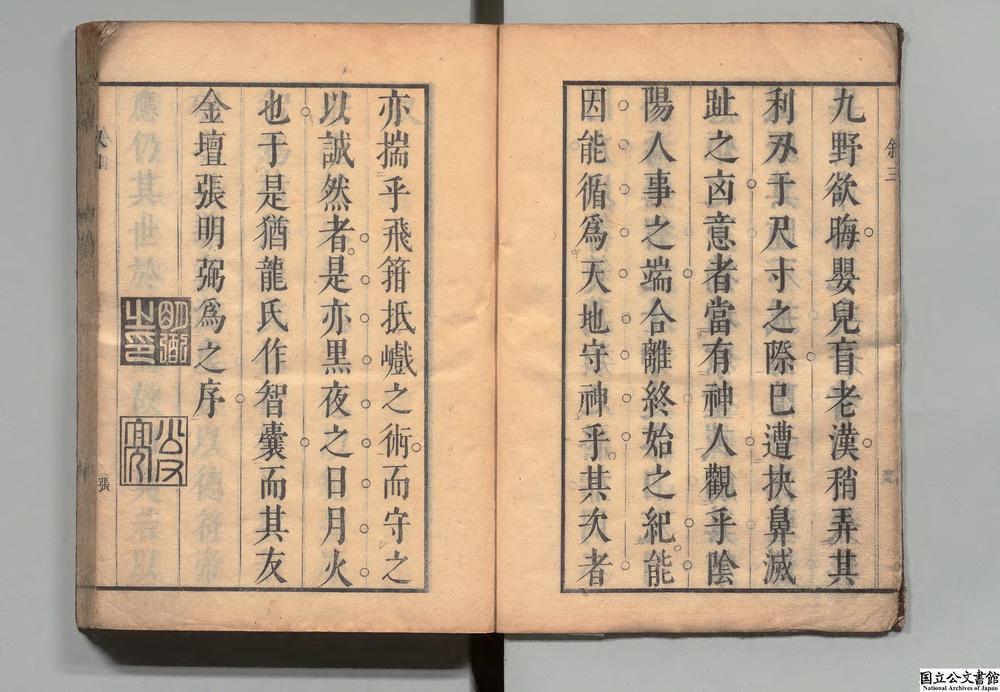 叙三
九野欲晦嬰兒盲老漢稍弄其
利刄于尺寸之際巳遭抉鼻滅
趾之㐫意者當有神人觀乎陰
陽人事之端合離終始之紀能
因能循爲天地守神乎其次者
亦揣乎飛箝抵巇之術而守之
以誠然者是亦黑夜之日月火
也于是猶龍氏作智囊而其友
金壇張明弼爲之序
明弼之印
張
国立公文書館
National Archives of Japan